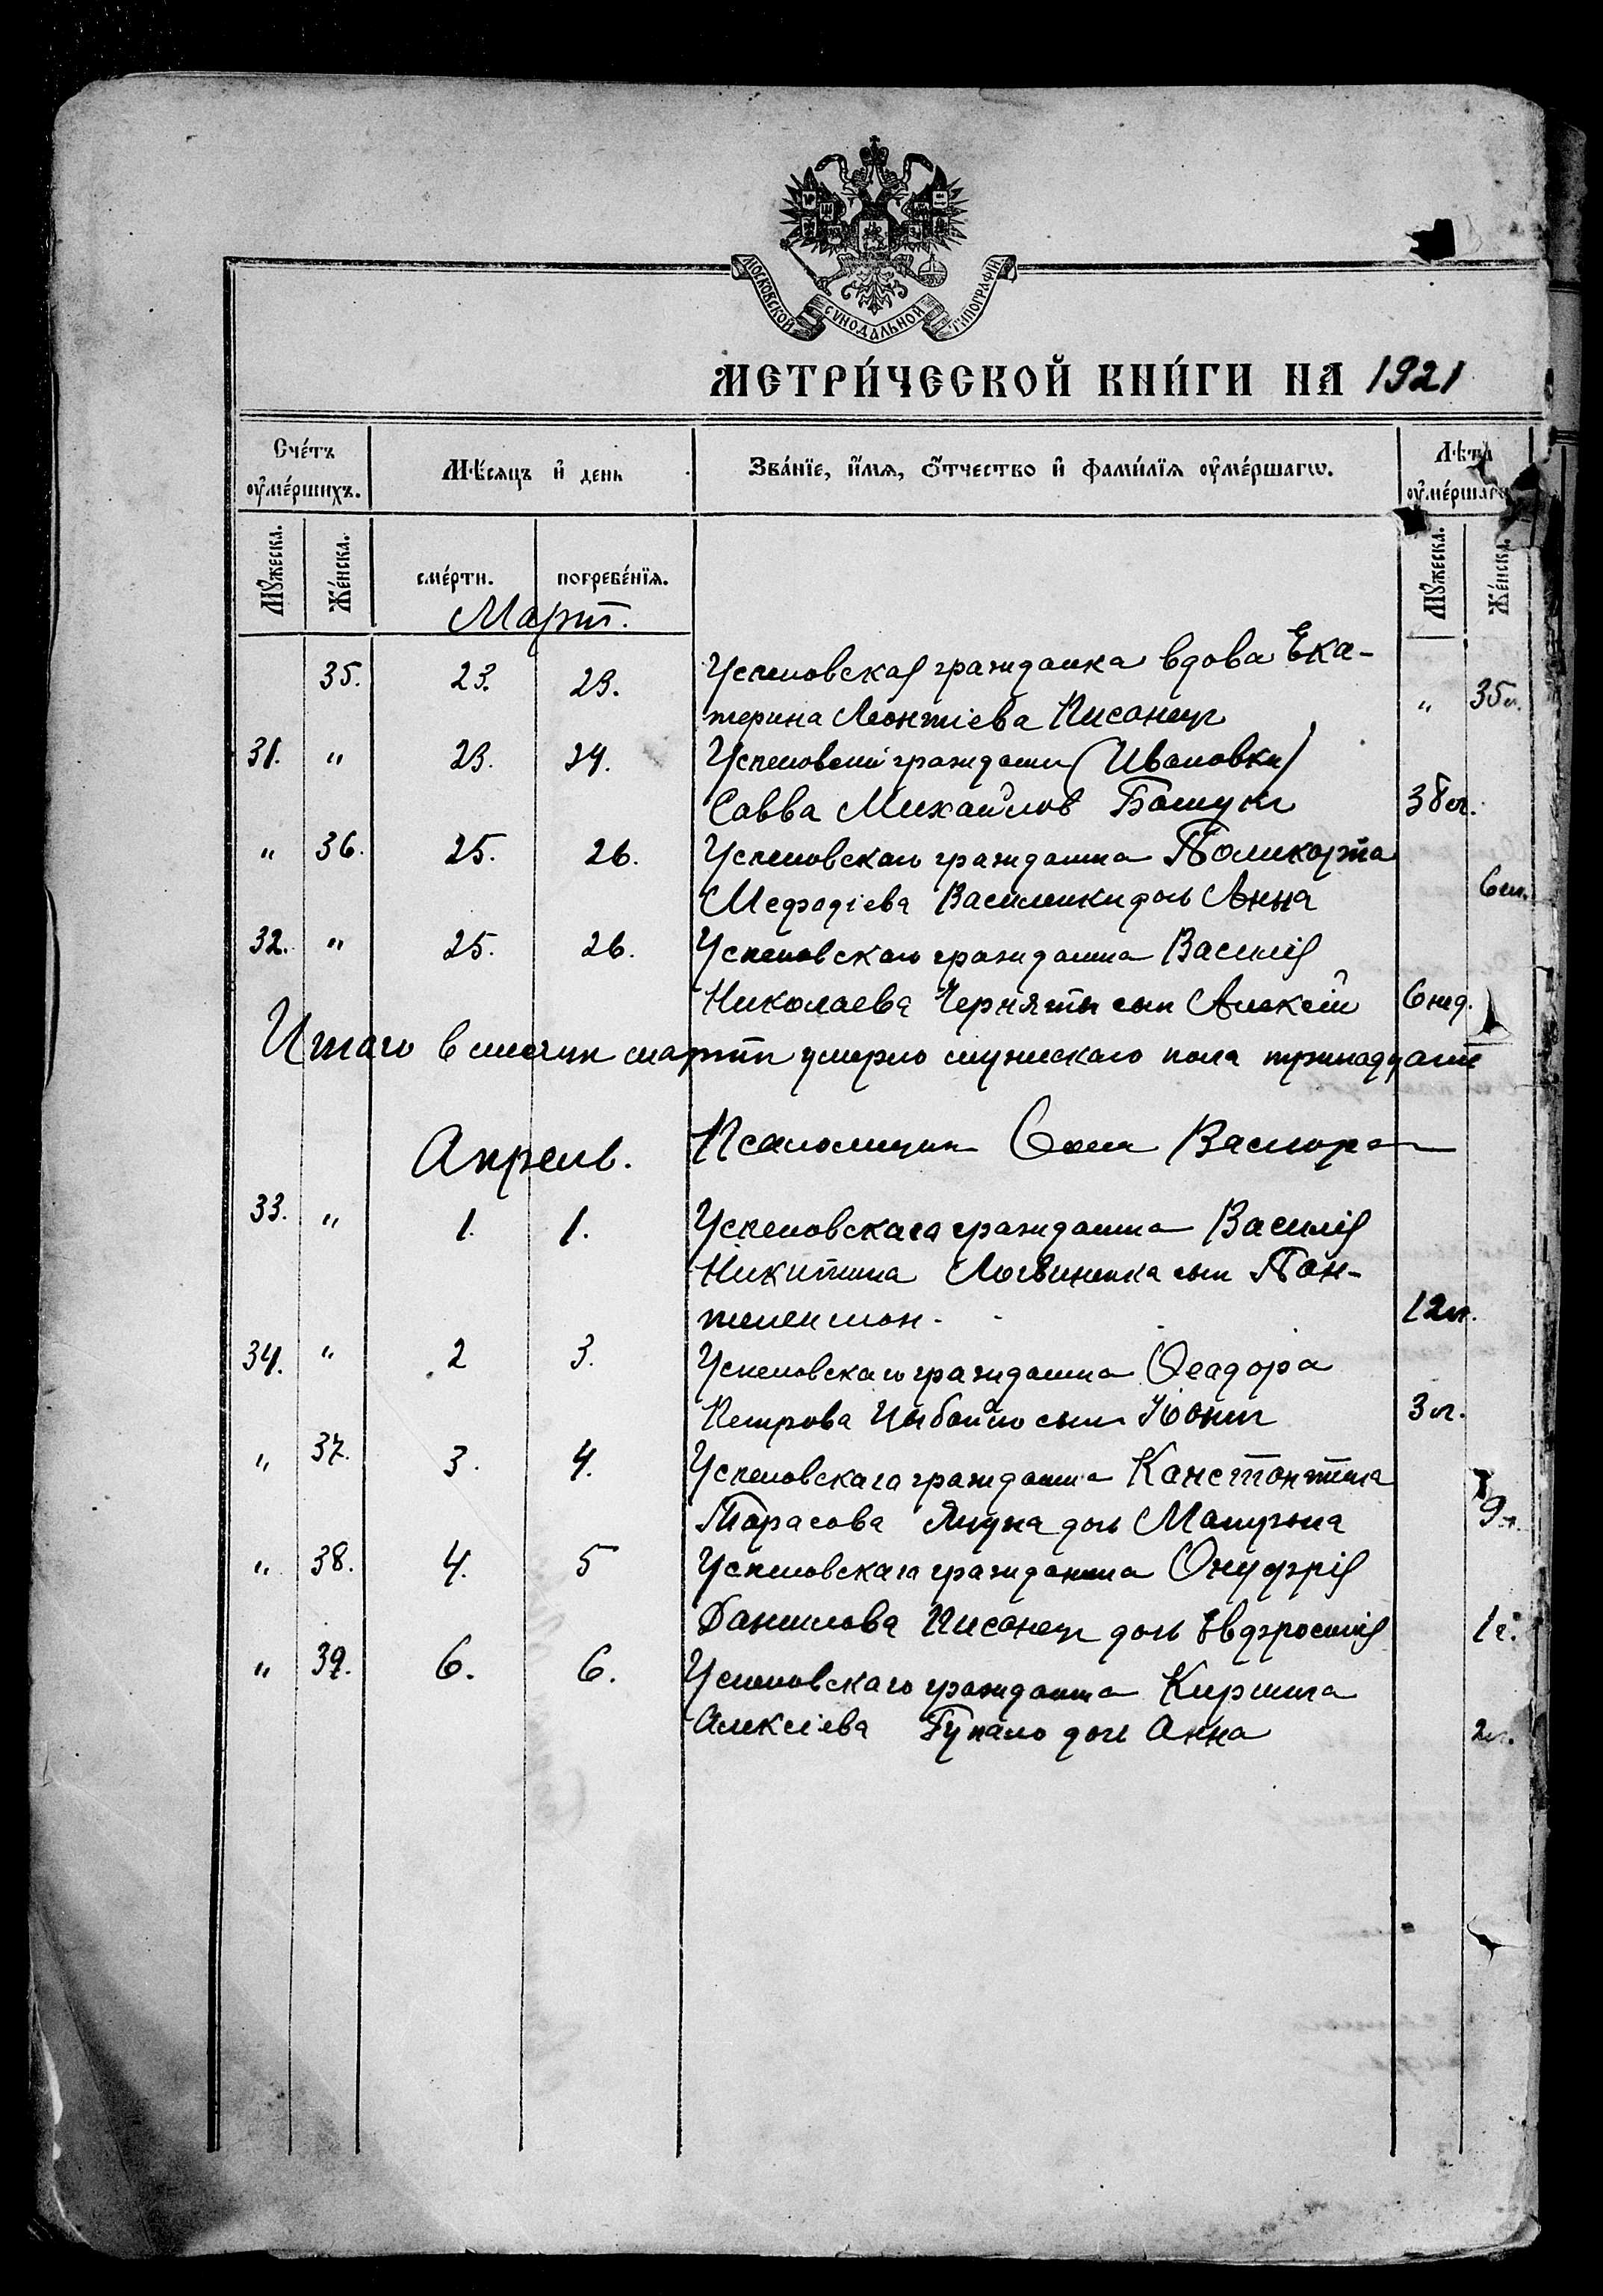 МОСКОВСКОЙ СѴНОДАЛЬНОЙ ТИПОГРАФІИ
МЕТРИ́ЧЕСКОЙ КНИ́ГИ НА 1921
Сче́тъ оумершихъ.
Мѣсяцъ и день
Зва́нїе, и́мя, ѻтчество и фами́лїя оуме́ршагѡ.
Лѣта оуме́ршагѡ
Мꙋжеска.
Же́нска.
сме́рти.
погребе́нїя.
Мꙋжеска.
Же́нска.
Март.
35. 23. 23. Успеновская гражданка вдова Ека-
терина Леонтіева Писанец " 35 л.
31. " 23. 24. Успеновский гражданин (Ивановки)
Савва Михайлов Башук 38 л.
" 36. 25. 26. Успеновскаго гражданина Поликарпа
Мефодіева Василенки дочь Анна 6 м.
32. " 25. 26. Успеновскаго гражданина Василія
Николаева Черняты сын Алексій 6 нед.
Итого в месяце марте умерло мужескаго пола тринадцать
Псаломщик
Апрель.
33. " 1. 1. Успеновскаго гражданина Василія
Никитина Логвиненка сын Пан-
телеимон. 12 л.
34. " 2 3. Успеновскаго гражданина Ѳеодора
Петрова Цыбайло сын 3 л.
" 37. 3. 4. Успеновскаго гражданина Константина
Тарасова Яцуна дочь Матрона 9 л.
" 38. 4. 5 Успеновскаго гражданина Онуфрія
Данилова Писанец дочь Евфросинія 1 г.
" 39. 6. 6. Успеновскаго гражданина Кирилла
Алексіева Гупало дочь Анна 2 л.